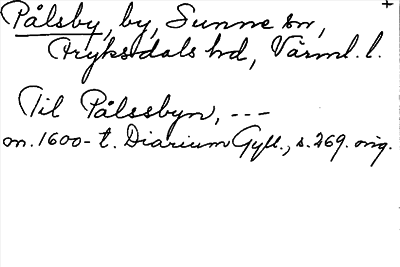 Pålsby, by, Sunne sn, +
Fryksdals hd, Värml. l.
Til Pålssbyn, ---
on. 1600-t. Diarium Gyll., s. 269. orig.